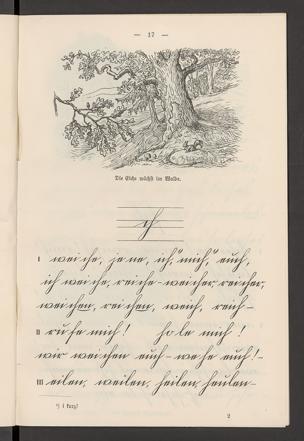 — 17 —
Die Eiche wächst im Walde.
ch
I weiche, jene, ich,*) mich,*) euch,
ich weiche, reiche - weicher, reicher,
weichen, reichen, weich, reich -
II rufe mich! hole mich!
wir weichen euch - wehe euch! -
III eilen, weilen, heilen, heulen -
*) i kurz!
2